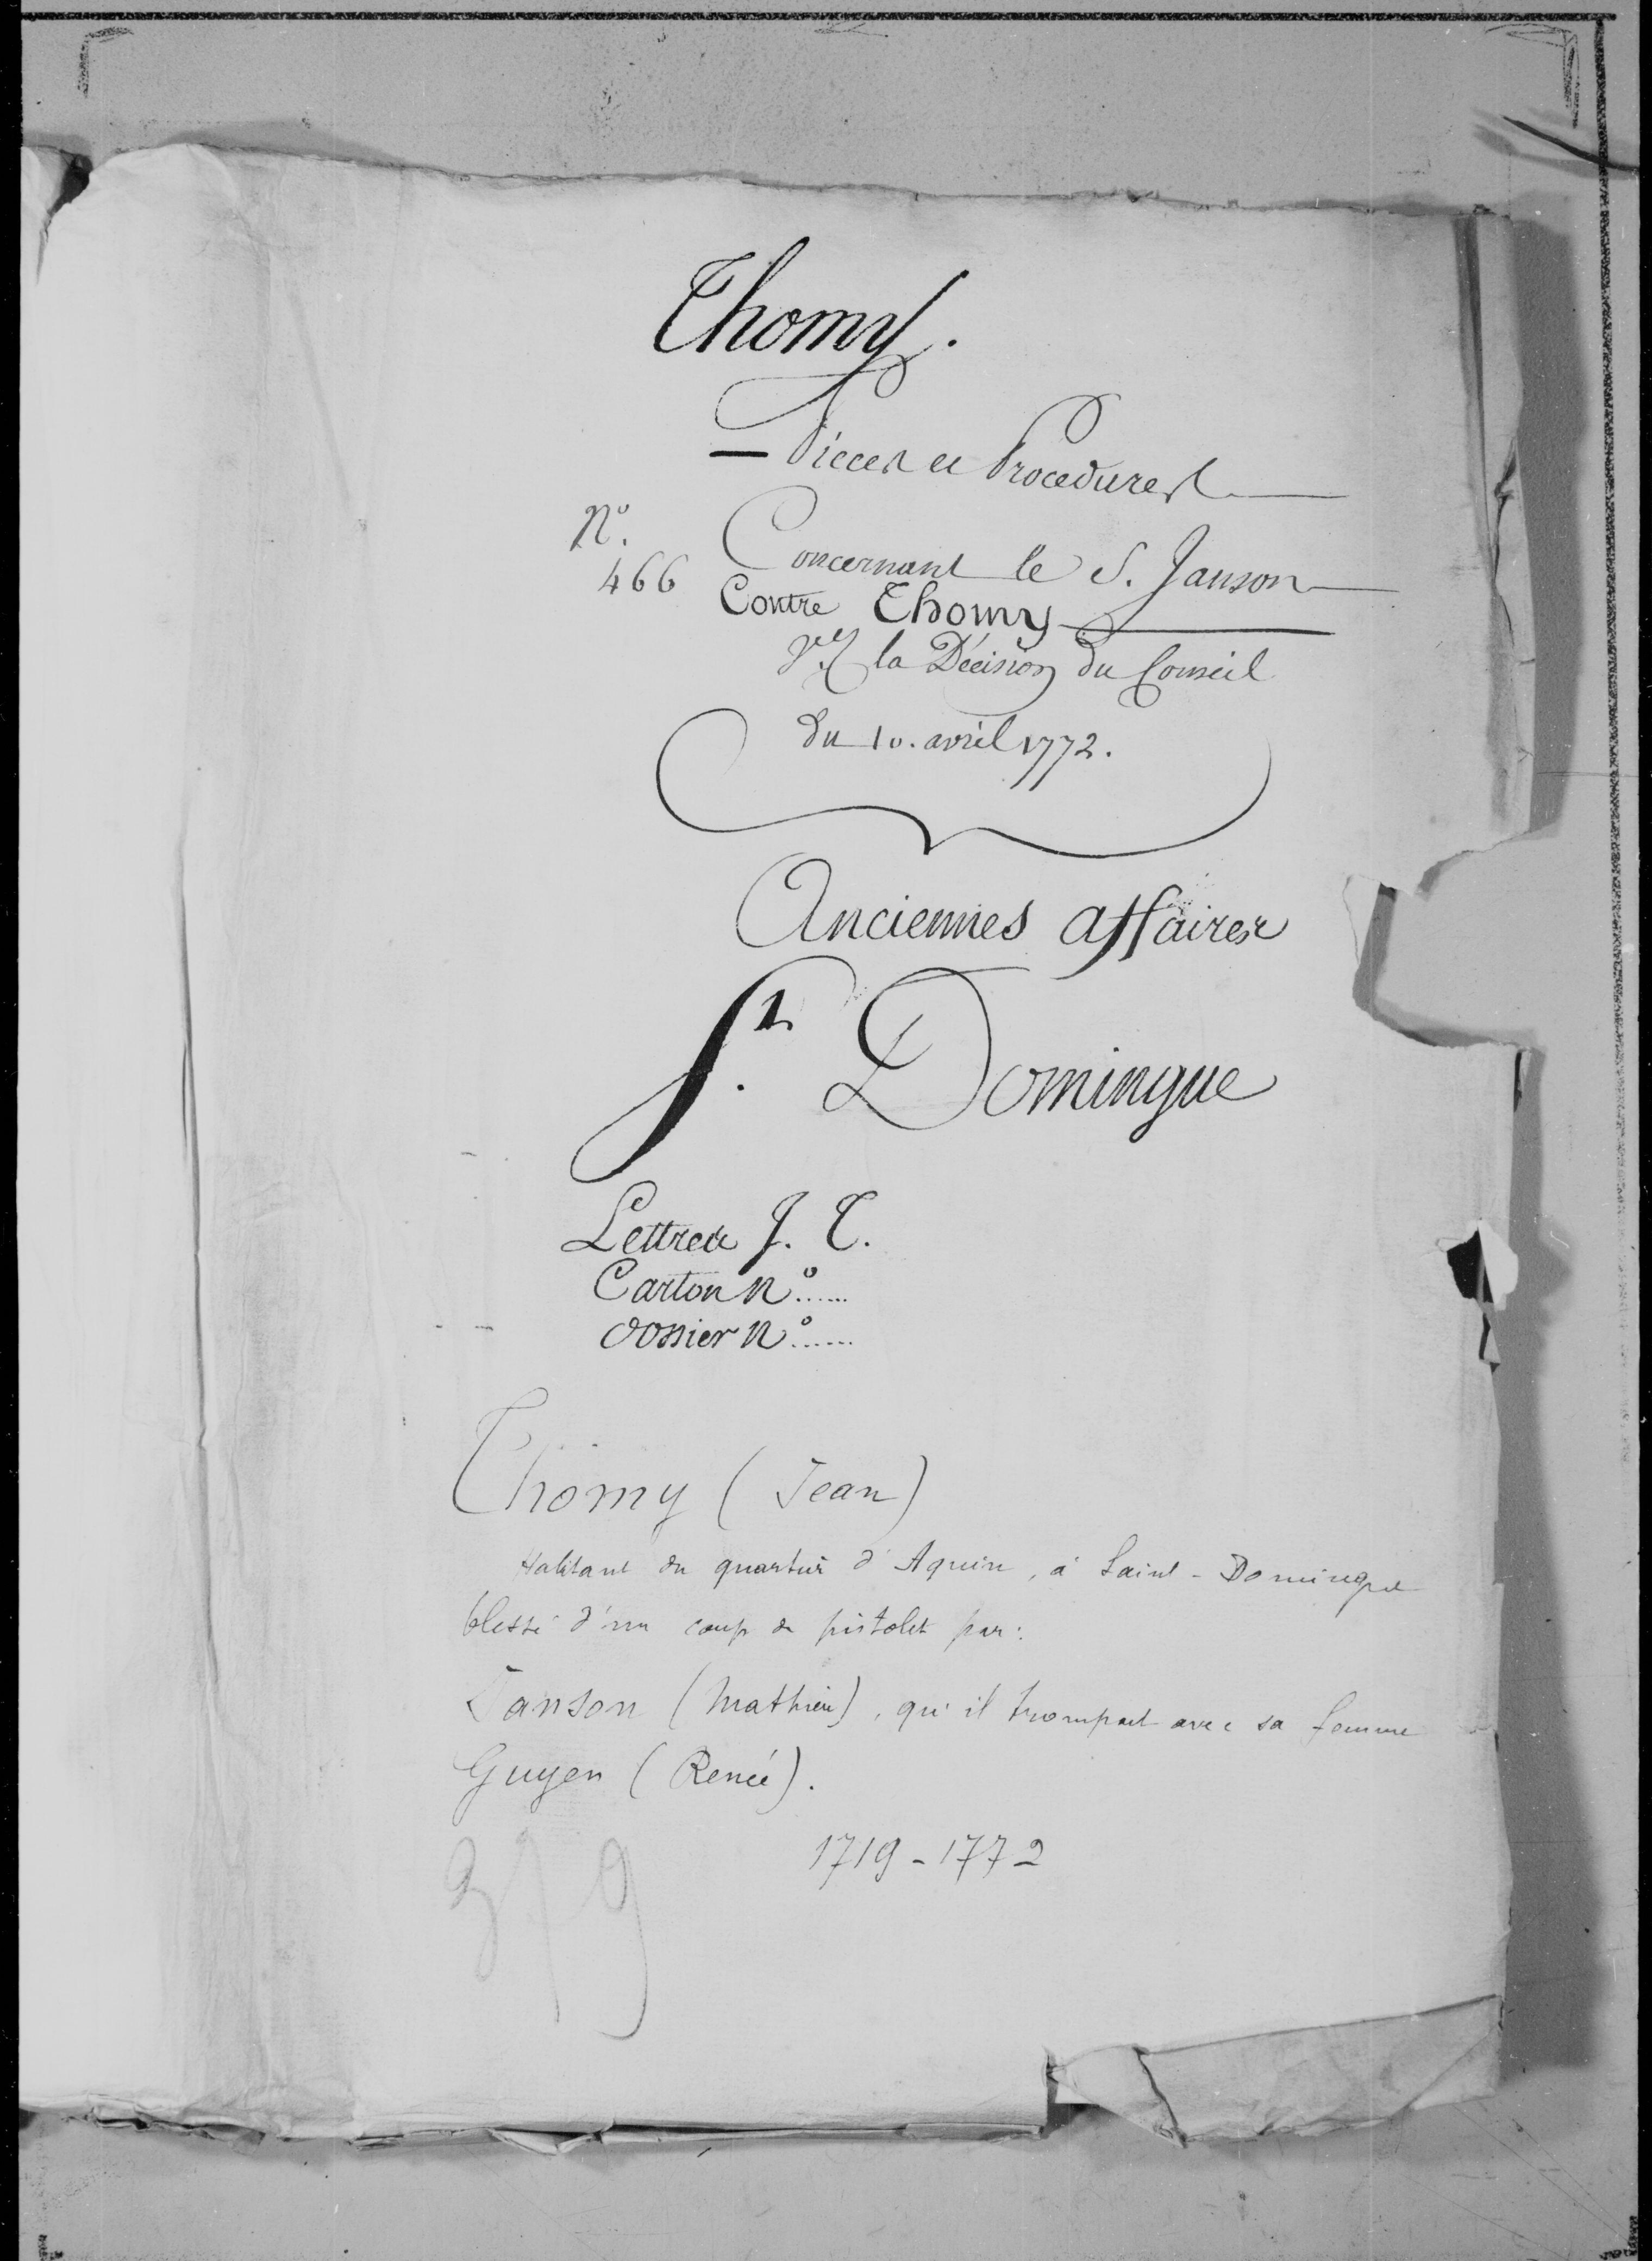 Thomy.
— Pièces et Procedures —
N°.
466
Concernant le S. Janson —
Contre Thomy —
V. la Décision du Conseil
du 10. avril 1772.
Anciennes affaires
St. Domingue
Lettres J. T.
Carton N°......
dossier N°......
Thomy (Jean)
Habitant du quartier d'Aquin, à Saint-Domingue
blessé d'un coup de pistolet par:
Janson (Mathieu), qu'il trompait avec sa femme
Guyen (Renée).
1719-1772
379